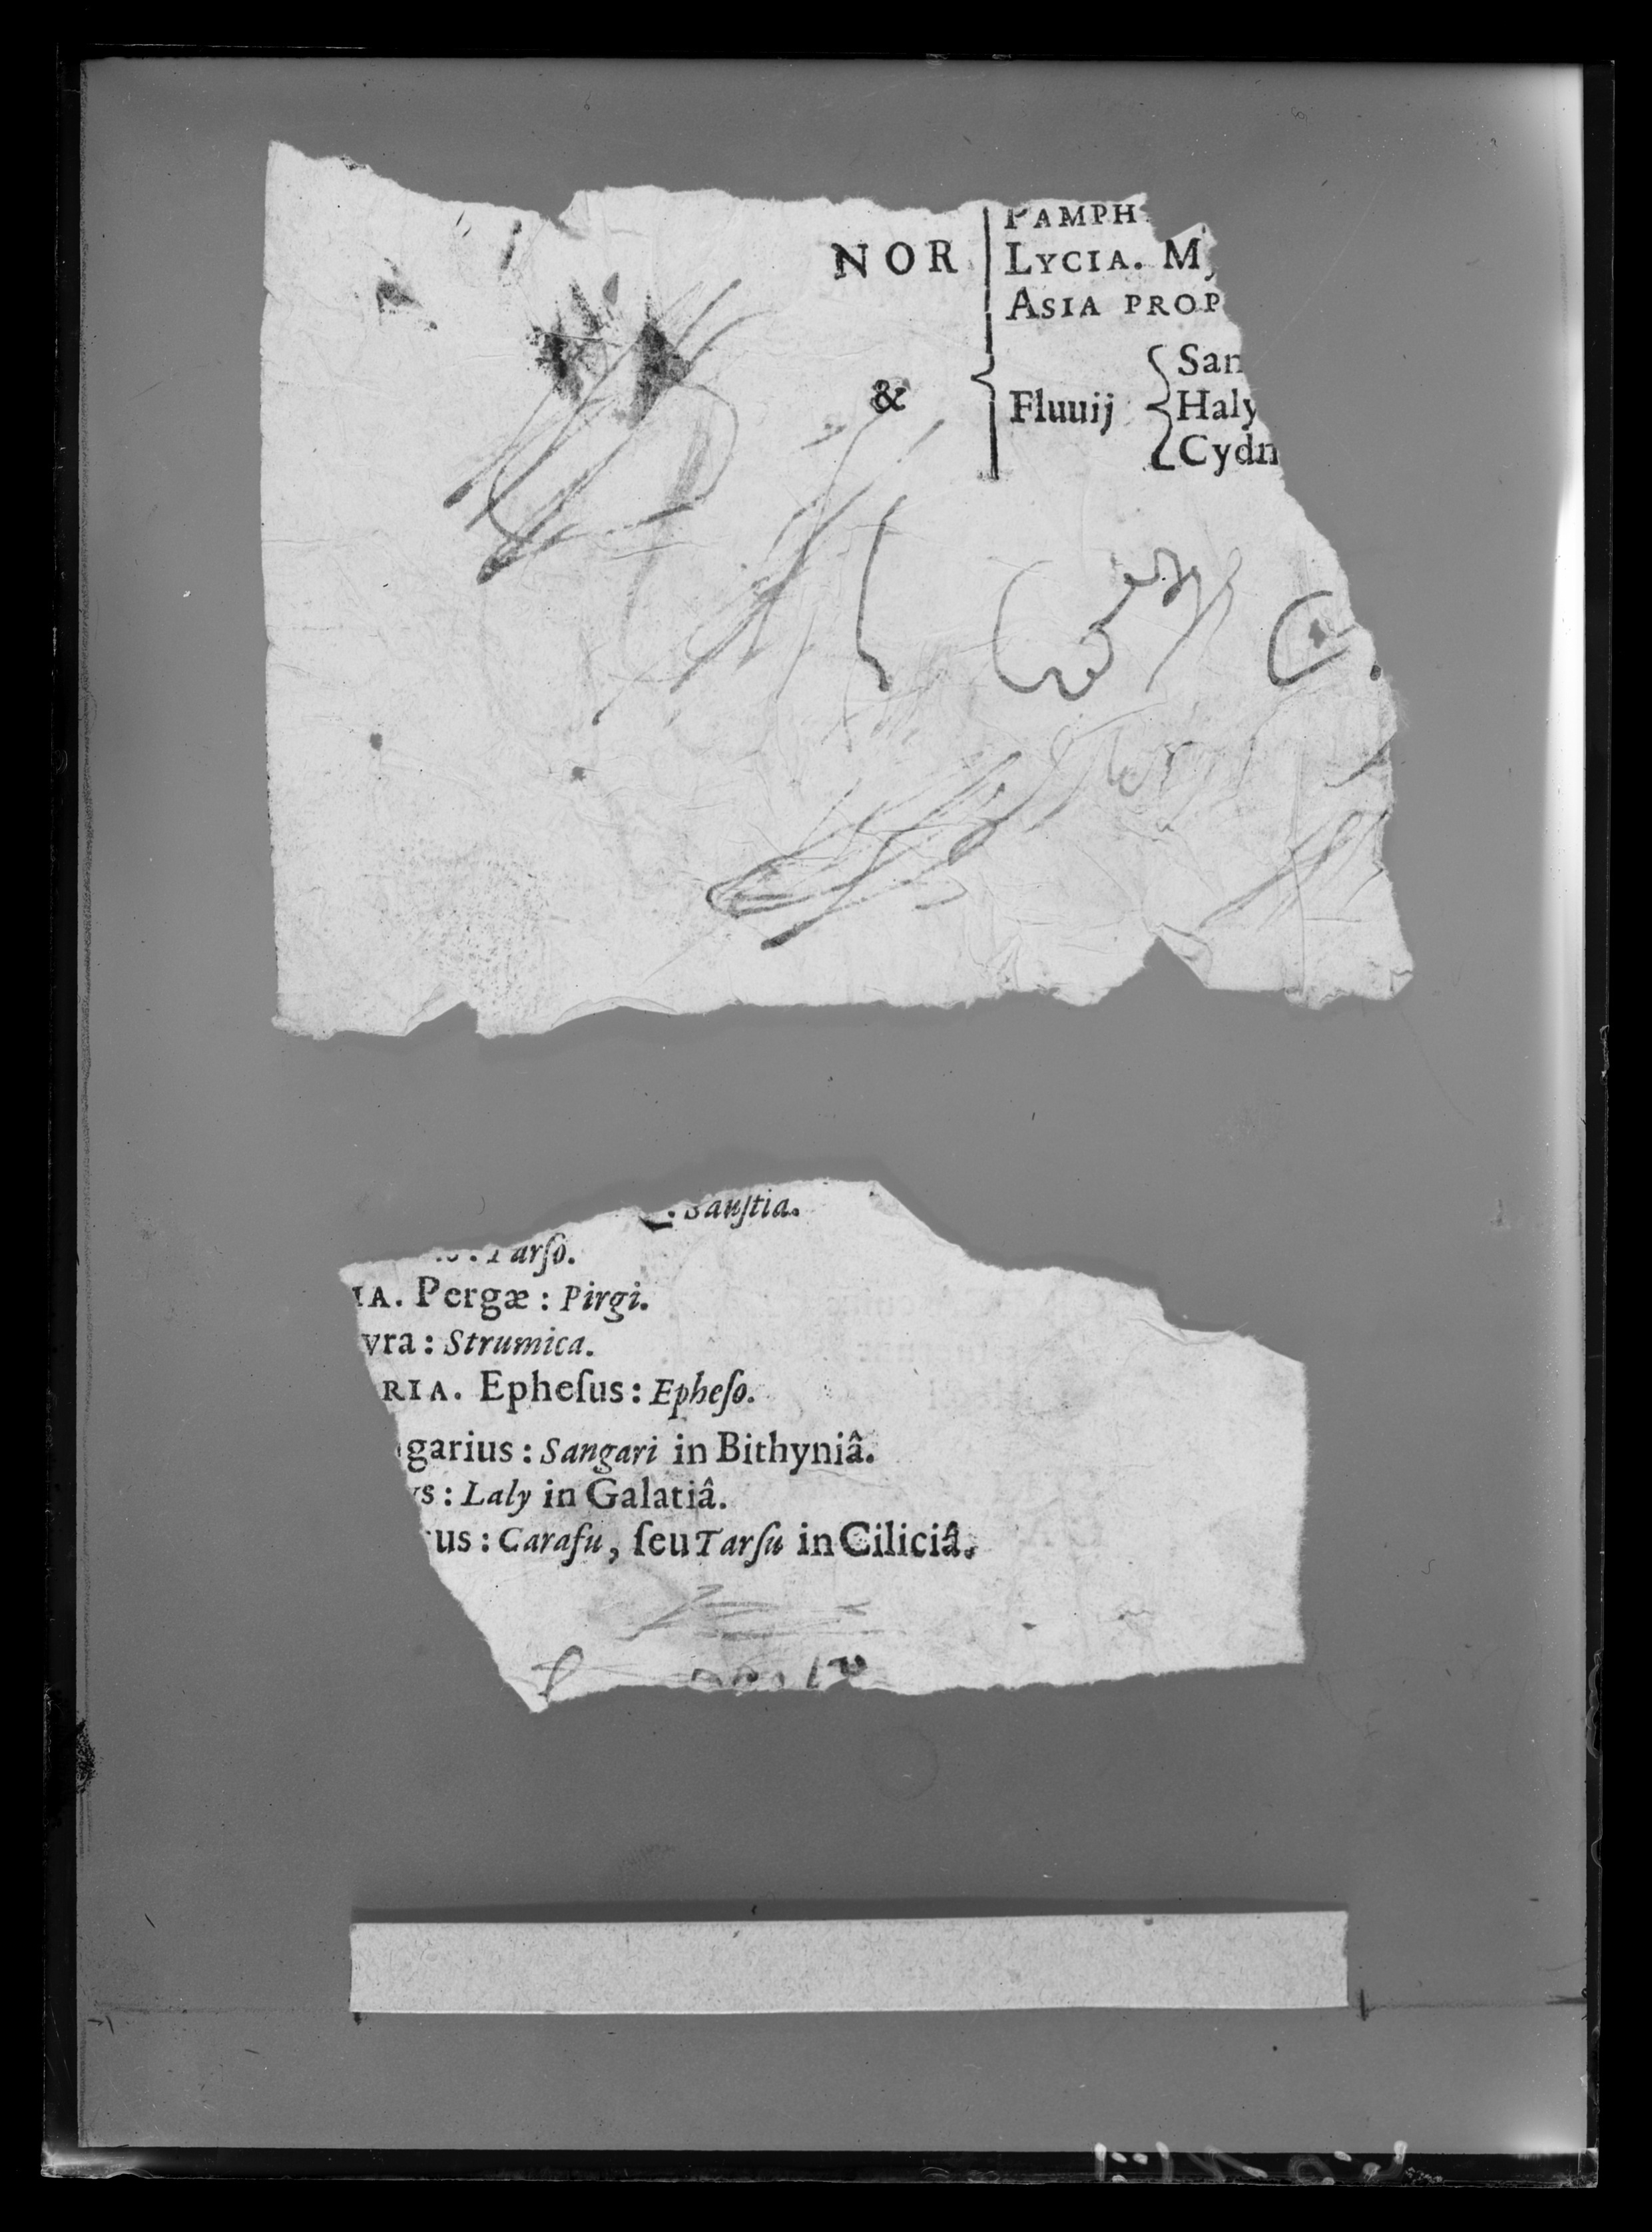 PAMPH
NOR LYCIA. M
ASIA PROP
San
& Fluuij Haly
Cydn
: Sauſtia.
: Tarſo.
IA. Pergæ : Pirgi.
yra : Strumica.
RIA. Epheſus : Epheſo.
garius : Sangari in Bithyniâ.
ys : Laly in Galatiâ.
us : Caraſu, ſeu Tarſu in Ciliciâ.